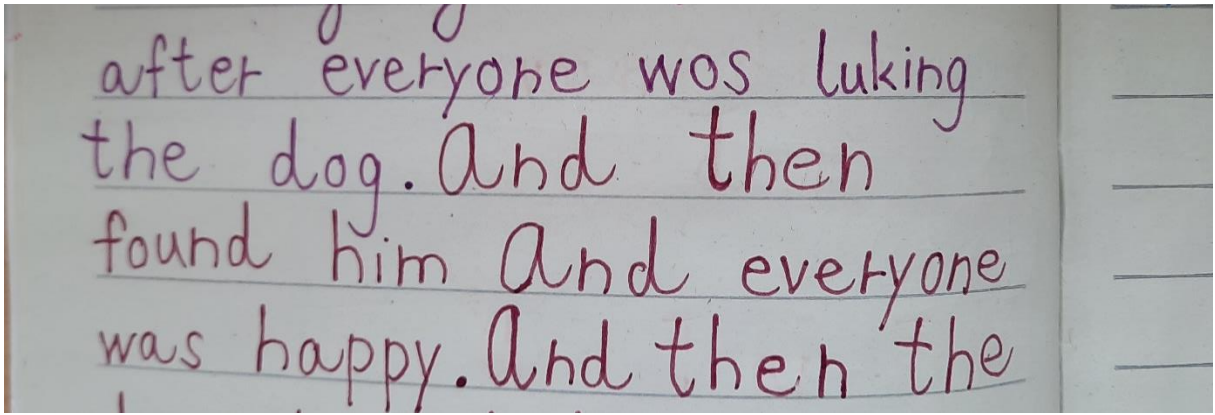 after everyone wos luking
the dog. And then
found him And everyone
was happy. And then the